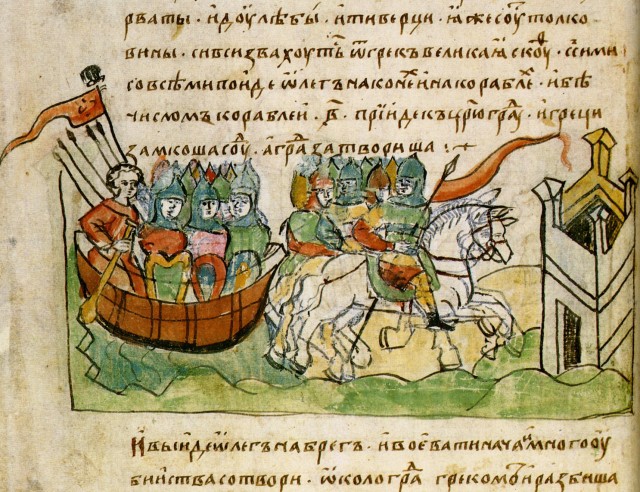 рваты · и доулѣбы · и тиверци · ꙗже соуⷮ толко
вины · си вси звахоуть ѿ грекъ великаꙗ скоуⷴ · с сими
со всѣми поиде ѿлегъ на конеⷯ и на кораблеⷯ · и бѣ
числомъ кораблеи · в҃ · прїиде къ цр҃ю граⷣ · и греци
замкоша соуⷣ · а граⷣ затвориша :+
И выиде ѿлегъ на брегъ · и воевати нача и много оу
бииства сотвори · ѿколо граⷣ грекомъ и разбиша